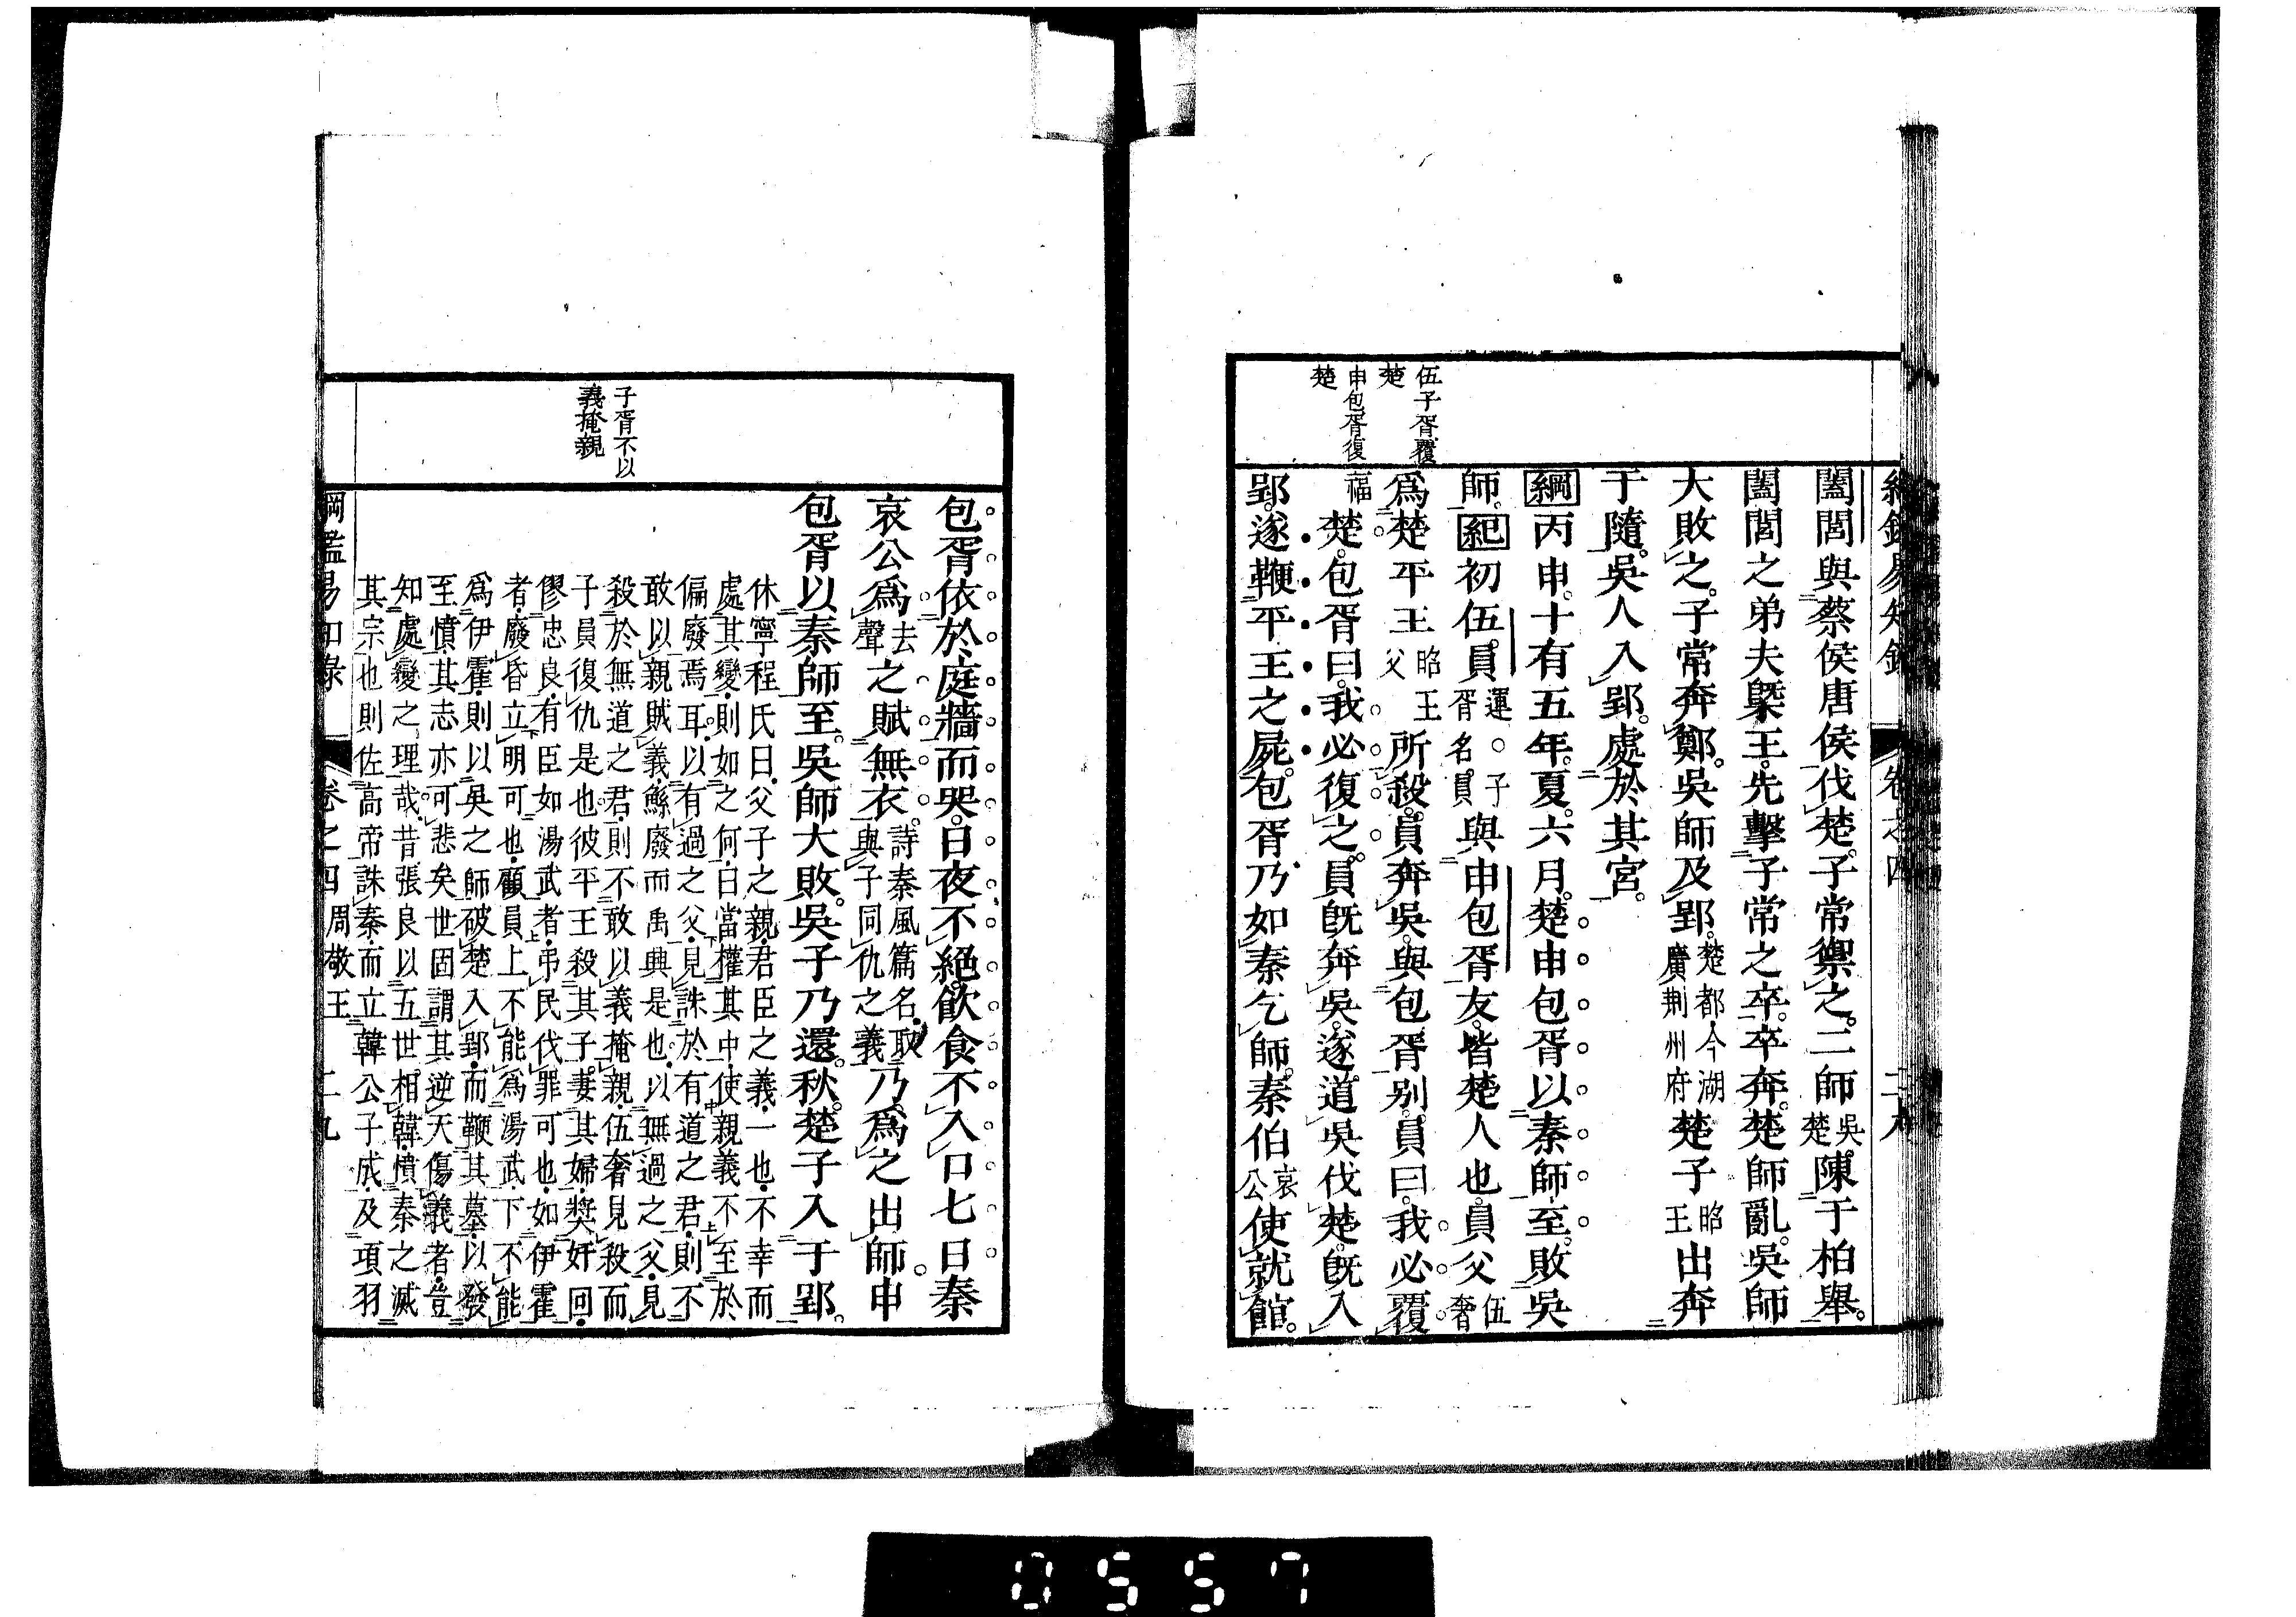 綱鑑易知錄　卷之四　二八
伍子胥覆
楚
申包胥復
楚
闔閭與蔡侯唐侯伐楚。子常禦之。二師吳楚陳于柏舉。
闔閭之弟夫槩王。先擊子常之卒。卒奔。楚師亂。吳師
大敗之。子常奔鄭。吳師及郢。楚都今湖廣荆州府楚子昭王出奔
于隨。吳人入郢。處於其宮。
綱丙申。十有五年。夏。六月。楚申包胥以秦師至。敗吳
師。紀初伍員運。子胥名員與申包胥友。皆楚人也。員父伍奢
爲楚平王昭王父所殺。員奔吳。與包胥别。員曰。我必覆
福楚。包胥曰。我必復之。員旣奔吳。遂道吳伐楚。旣入
郢。遂鞭平王之屍。包胥乃如秦乞師。秦伯哀公使就館。
包胥依於庭牆而哭。日夜不絕。飮食不入口七日秦
哀公爲去聲之賦無衣。詩秦風篇名取與子同仇之義乃爲之出師。申
包胥以秦師至。吳師大敗。吳子乃還。秋。楚子入于郢。
子胥不以
義掩親
休寧程氏曰父子之親君臣之義一也不幸而
處其變則如之何曰當權其中使親義不至於
偏廢焉耳以有過之父見誅於有道之君則不
敢以親賊義鯀廢而禹興是也以無過之父見
殺於無道之君則不敢以義掩親伍奢見殺而
子員復仇是也彼平王殺其子妻其婦獎奸回
僇忠良有臣如湯武者弔民伐罪可也如伊霍
者廢昏立明可也顧員上不能爲湯武下不能
爲伊霍則以吳之師破楚入郢而鞭其墓以發
至憤其志亦可悲矣世固謂其逆天傷義者豈
知處變之理哉昔張良以五世相韓憤秦之滅
其宗也則佐高帝誅秦而立韓公子成及項羽
綱鑑易知錄　卷之四　周敬王　二九
0557